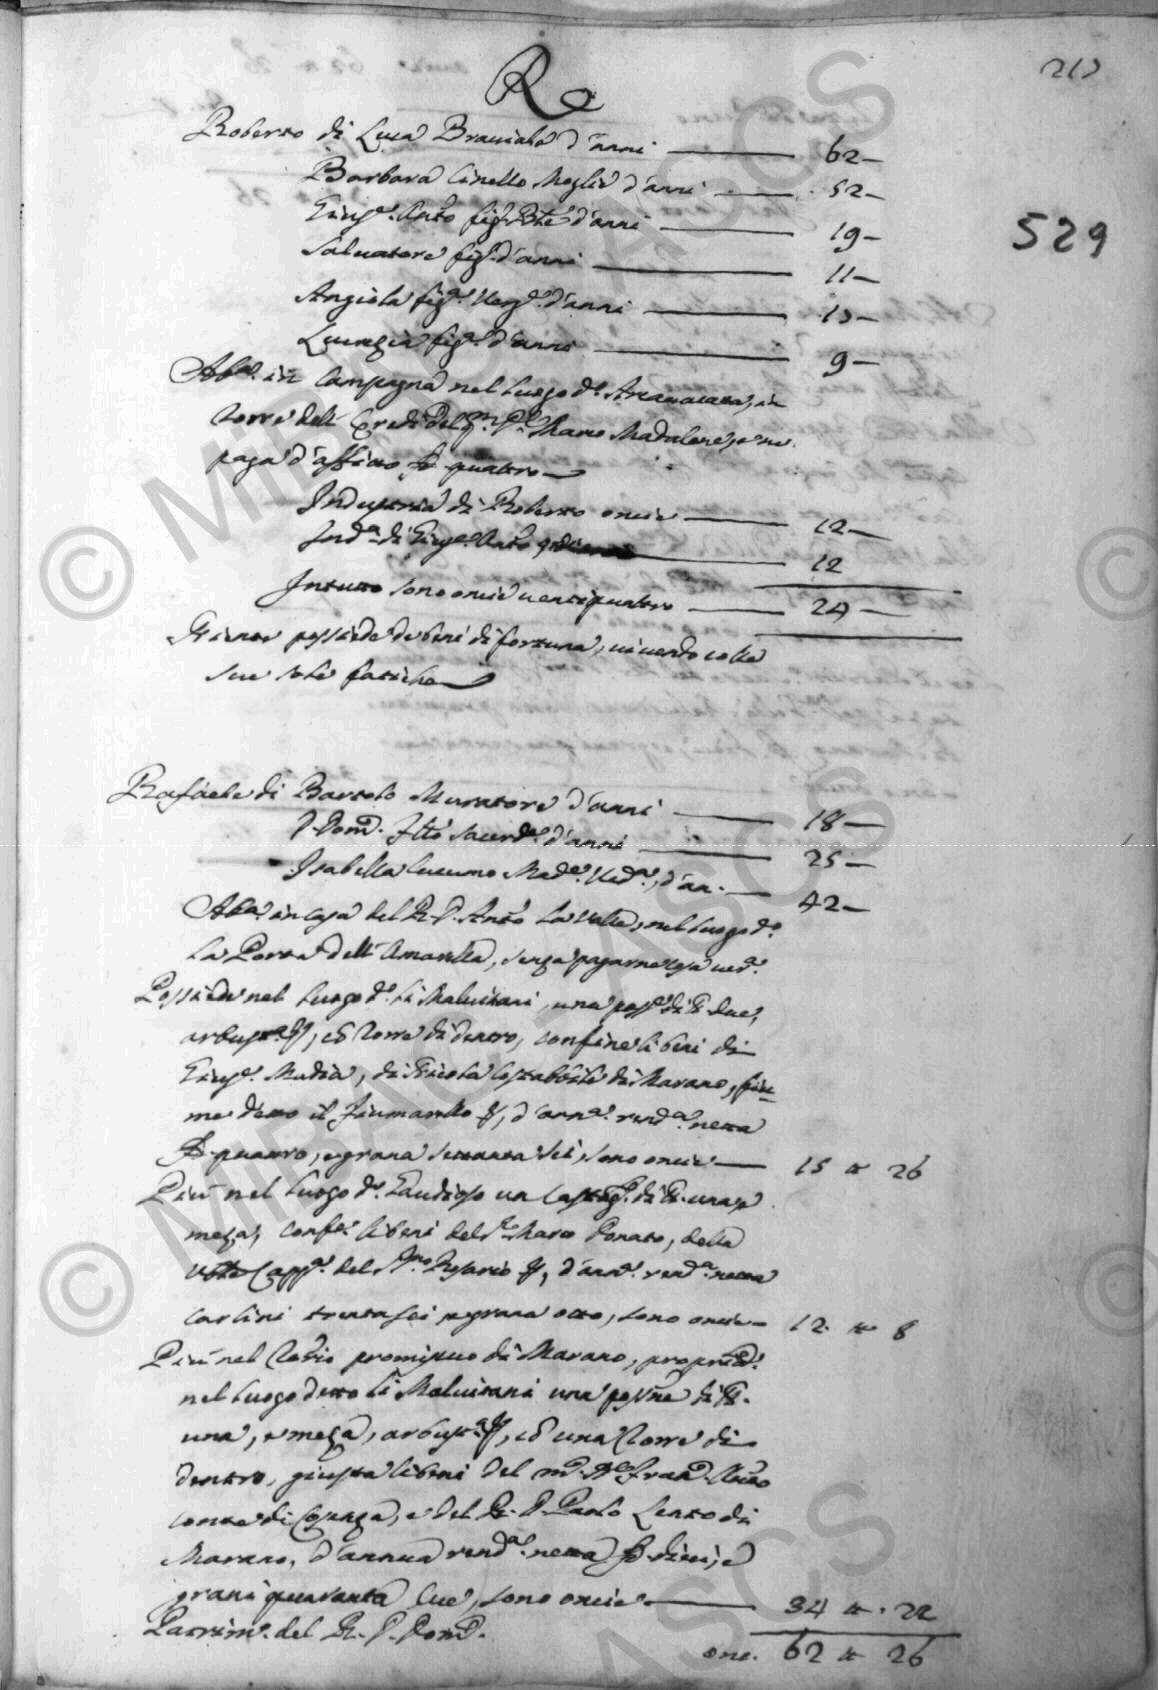 213
Re
529
Roberto di Luca Bracciale d'anni 62
Barbara Cinello Moglie d'anni 52
Gius.e Ant.o fig. d'anni 19
Salvatore fig. d'anni 11
Angiola fig.a Verg.e d'anni 13
Lucrezia fig.a d'anni 9
Ab.a in Campagna nel luogo d.o in
Torre dell' Eredi del q.m Marco Madalone, e ne
paga d'affitto quattro
Industria di Roberto oncie 12
Ind.a di Gius.e Ant.o 12
Intutto sono oncie ventiquattro 24
Niente possiede de beni di fortuna, vivendo colle
sue sole fatiche
Rafaele di Bartolo Muratore d'anni 18
D. Dom.o f.llo Sacerd.e d'anni 25
Isabella Cucumo Mad.e Ved.a, d'an. 42
Ab.a in casa del R. D. Ant.o La Valle, nel luogo d.o
la Porta dell' Amarella, senza pagarne cosa
Possiede nel luogo d.o li Malvitani, una poss.e di due,
arbust.a, co Torre di dentro, confine li beni di
Gius.e Madia, di Nicola Costabile di Marano, fiu=
me detto il Fiumarello, d'ann.a rend.a netta
quattro, e grana settanta sei, sono oncie 15 26
Più nel luogo d.o Gaudioso un di una, e
meza, conf.e li beni del Marco Donato, della
Capp.a del S.mo Rosario, d'ann.a rend.a netta
carlini trenta sei e grana otto, sono oncie 12 8
Più nel promiscuo di Marano, propriam.
nel luogo detto li Malvitani una poss.ne di
una, e meza, arbust.a, co una Torre di
dentro, giusta li beni del
conte di Cosenza, e del R. D. Paolo Lento di
Marano, d'annua rend.a netta dieci, e
grani quaranta due, sono oncie 34 22
Patrim.o del R. D. Dom.o
onc. 62 26
© MiBAC - ASCS
© MiBAC - ASCS